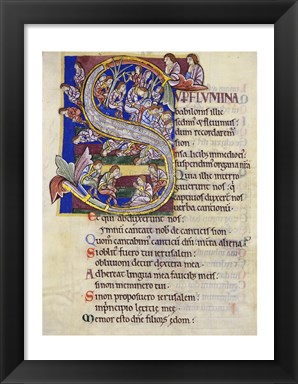 SUP FLUMINA
babilonis illic
sedim' & fleuim'
dum recordarem
sion
In salicib; in medio ei'
suspendim' organa nra
Quia illic interro
gauerunt nos: q
captiuos duxer' nos
uerba cantionū
Et qui abduxerunt nos:
ymnū cantate nob de canticis sion
Quom cantabim' canticū dni: in tra aliena
Si oblit' fuero tui ierusalem:
obliuioni detur dextera mea
Adhereat lingua mea faucib; meis:
si non meminero tui
Si non proposuero ierusalem:
in principio leticie mee
Memor esto dne filior edom: